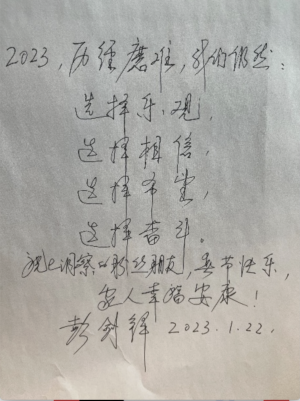 2023,历经磨难,我们仍然:
选择乐观,
选择相信,
选择希望,
选择奋斗。
祝洞察的粉丝朋友,春节快乐,
家人幸福安康!
彭剑锋 2023.1.22.